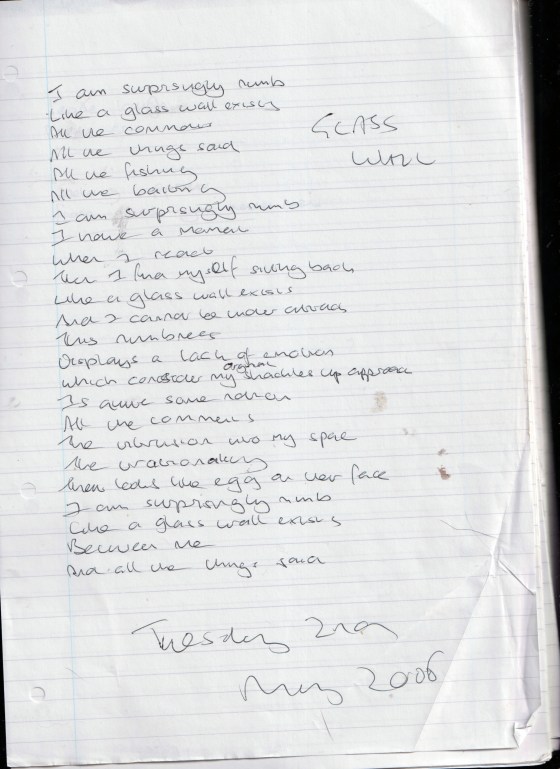 I am surprisingly numb
Like a glass wall exists
GLASS
WALL
All the comments
All the things said
All the fishing
All the baiting
I am surprisingly numb
I have a moment
When I react
Then I find myself sitting back
Like a glass wall exists
And I cannot be under attack
This numbness
Displays a lack of emotion
Which consider my original shackles up approach
Is quite some notion
All the comments
The intrusion into my space
The irrationality
Then looks like egg on her face
I am surprisingly numb
Like a glass wall exists
Between me
And all the things said
Tuesday 2nd
May 2006